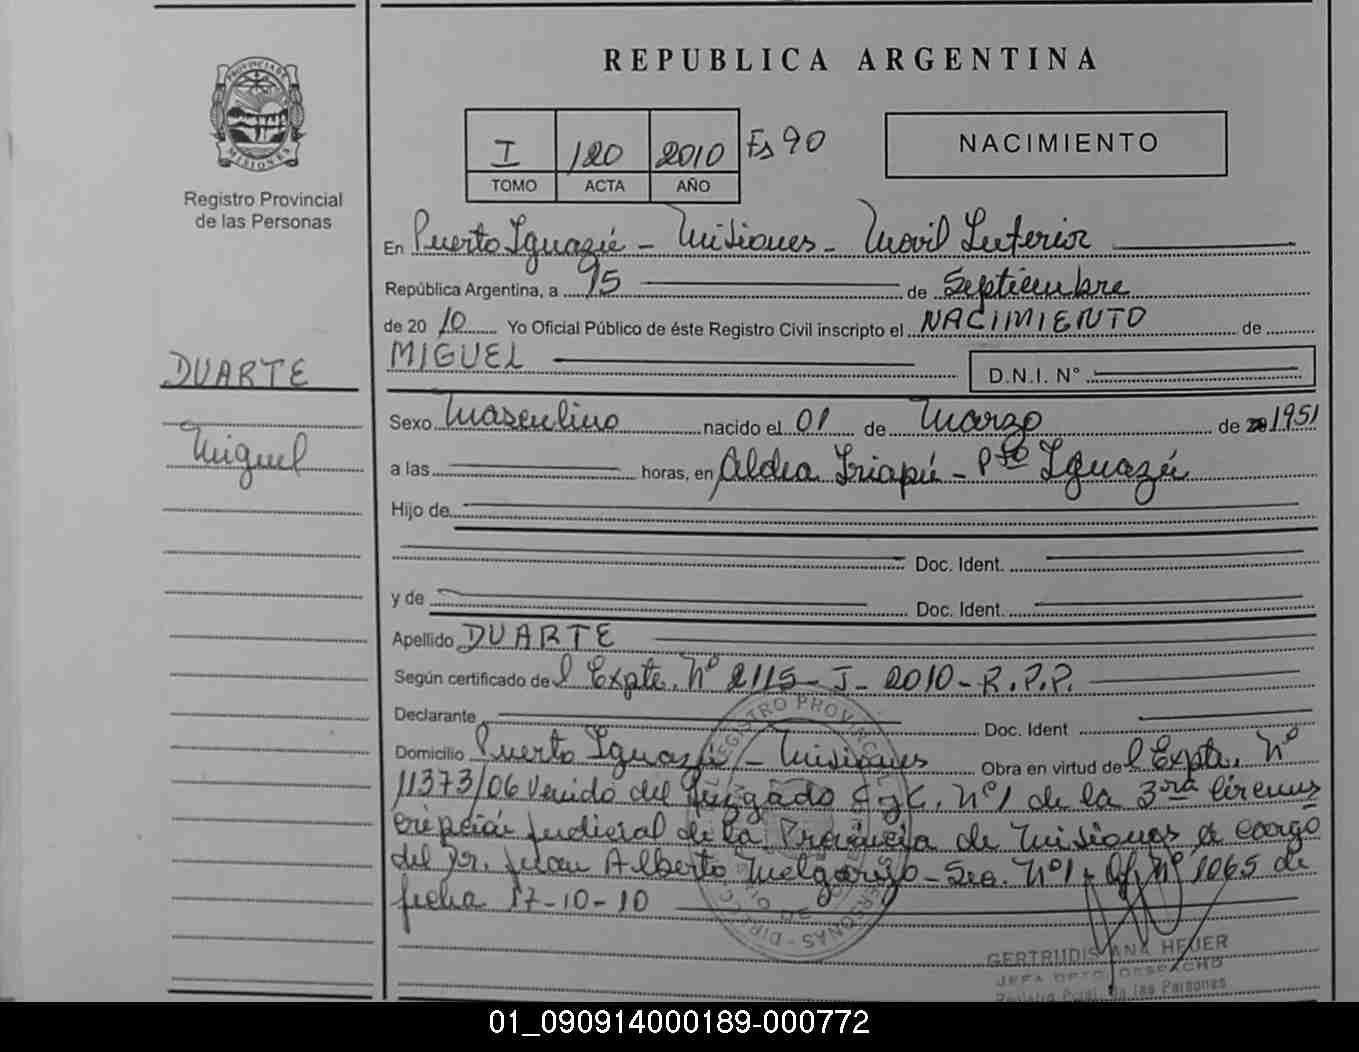 REPUBLICA ARGENTINA
PROVINCIA DE
MISIONES
Registro Provincial
de las Personas
I 120 2010 Fs 90
TOMO ACTA AÑO
NACIMIENTO
En Puerto Iguazú - Misiones - Movil Interior
República Argentina, a 15 de Septiembre
de 20 10 Yo Oficial Público de éste Registro Civil inscripto el NACIMIENTO de
MIGUEL
D.N.I. N°
DUARTE
Miguel
Sexo Masculino nacido el 01 de Marzo de 1951
a las horas, en Aldea Iriapú - Pto Iguazú
Hijo de
Doc. Ident.
y de Doc. Ident.
Apellido DUARTE
Según certificado de l Expte. Nº 2115 - J - 2010 - R.P.P.
Declarante Doc. Ident
Domicilio Puerto Iguazú - Misiones Obra en virtud de l Expte. Nº
11373/06 Venido del Juzgado C y C. Nº1 de la 3ra Circuns
cripción Judicial de la Provincia de Misiones a cargo
del Dr. Juan Alberto Melgarejo - Sec. Nº1 Of. Nº 1065 de
fecha 17-10-10
GERTRUDIS ANA HEUER
JEFA DPTO DESPACHO
Registro Provl. de las Personas
01_090914000189-000772